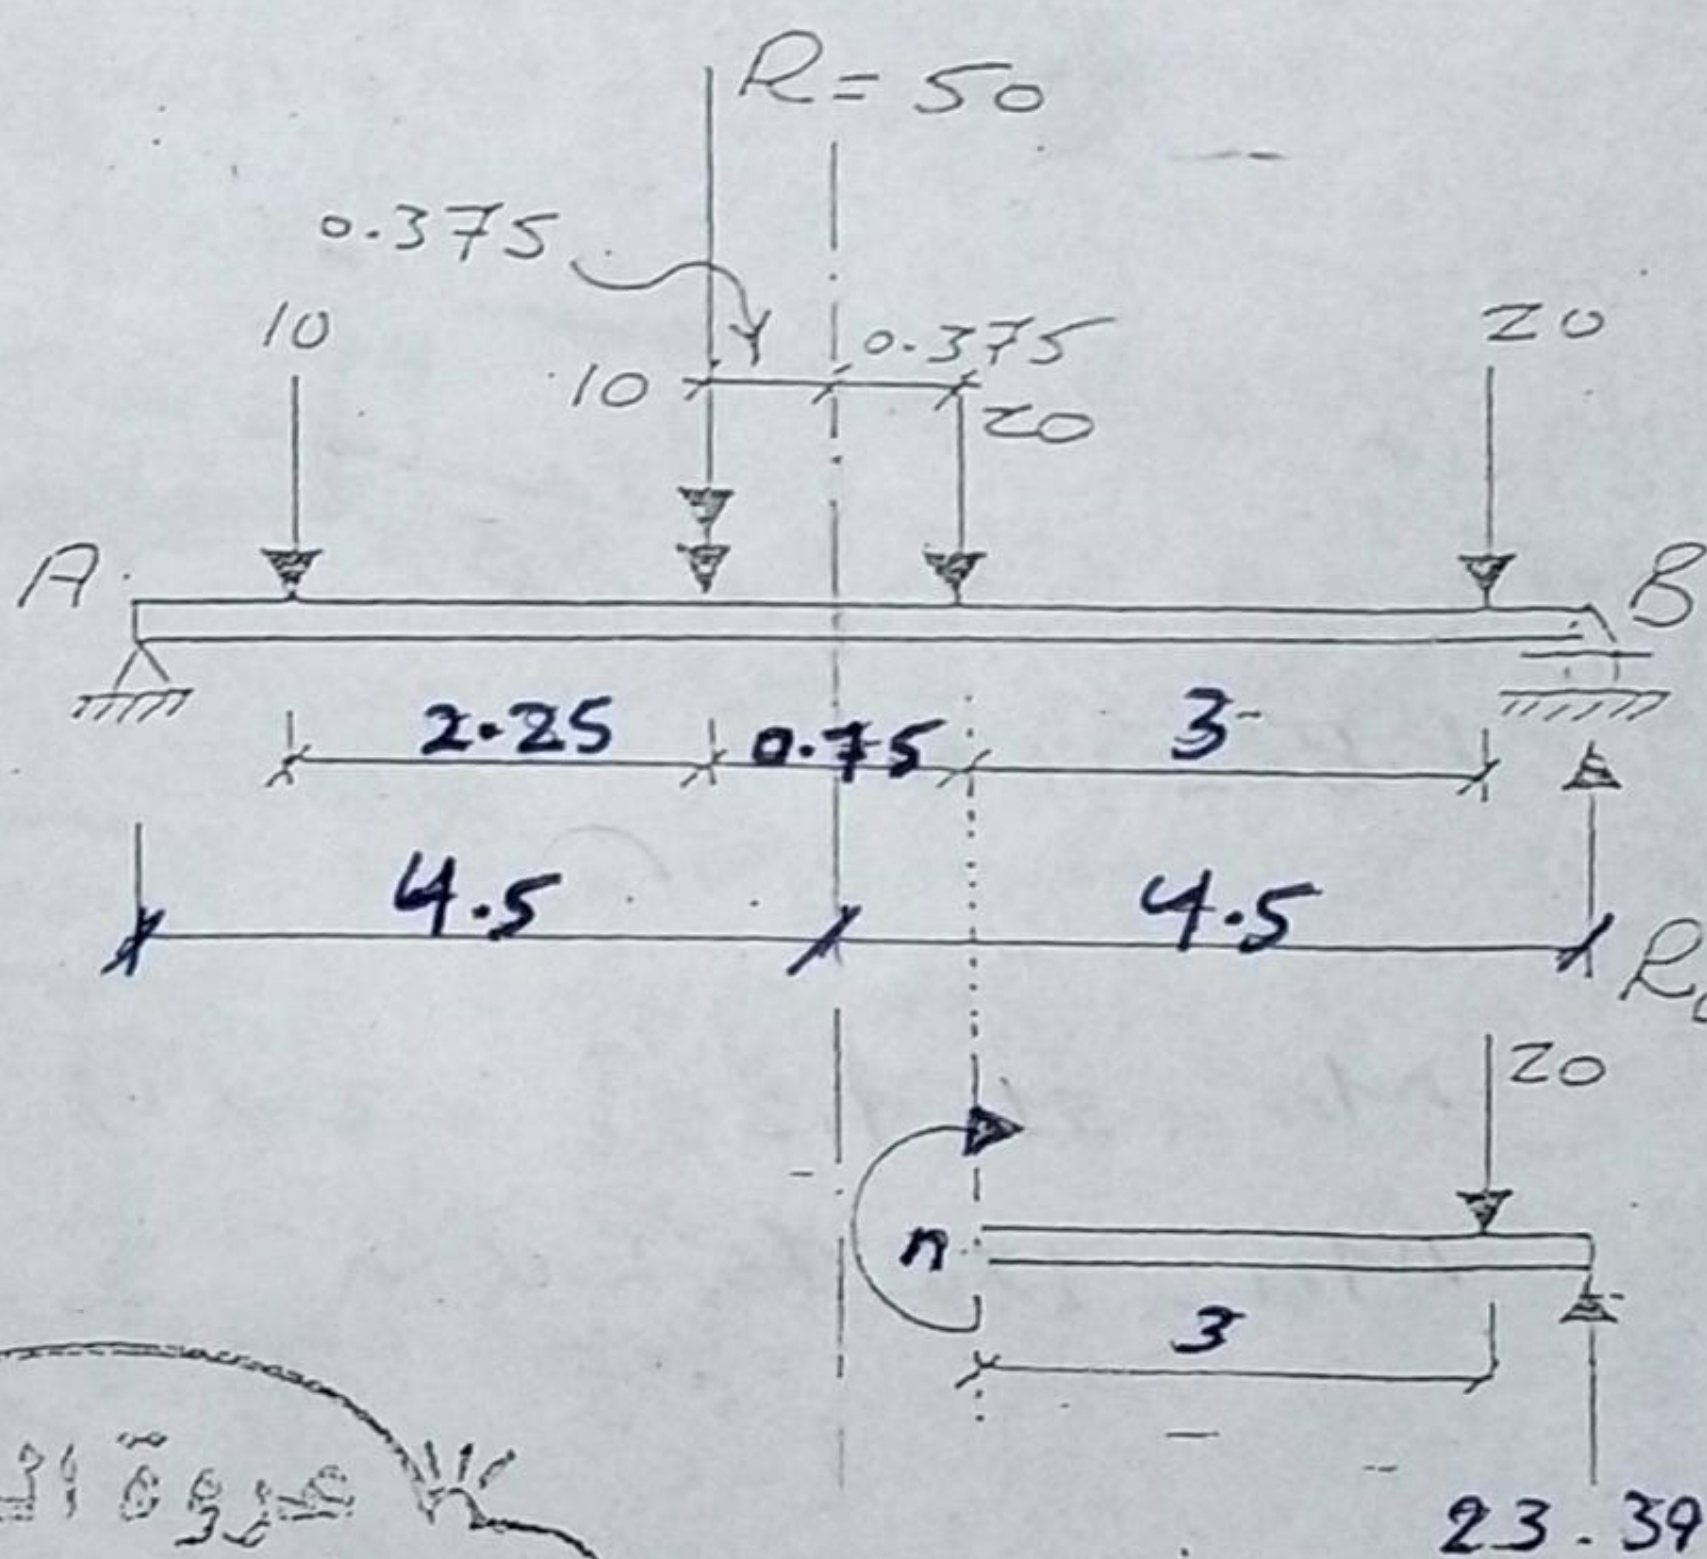 R = 50
0.375
0.375
10
10
20
20
A
B
2.25
0.75
3
4.5
4.5
R
20
n
3
23.39